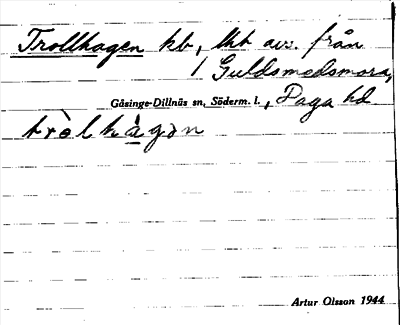 Trollhagen kb, lht avs. från
Guldsmedsmora,
Gåsinge-Dillnäs sn, Söderm. l., Daga hd
tròlhàgən
Artur Olsson 1944